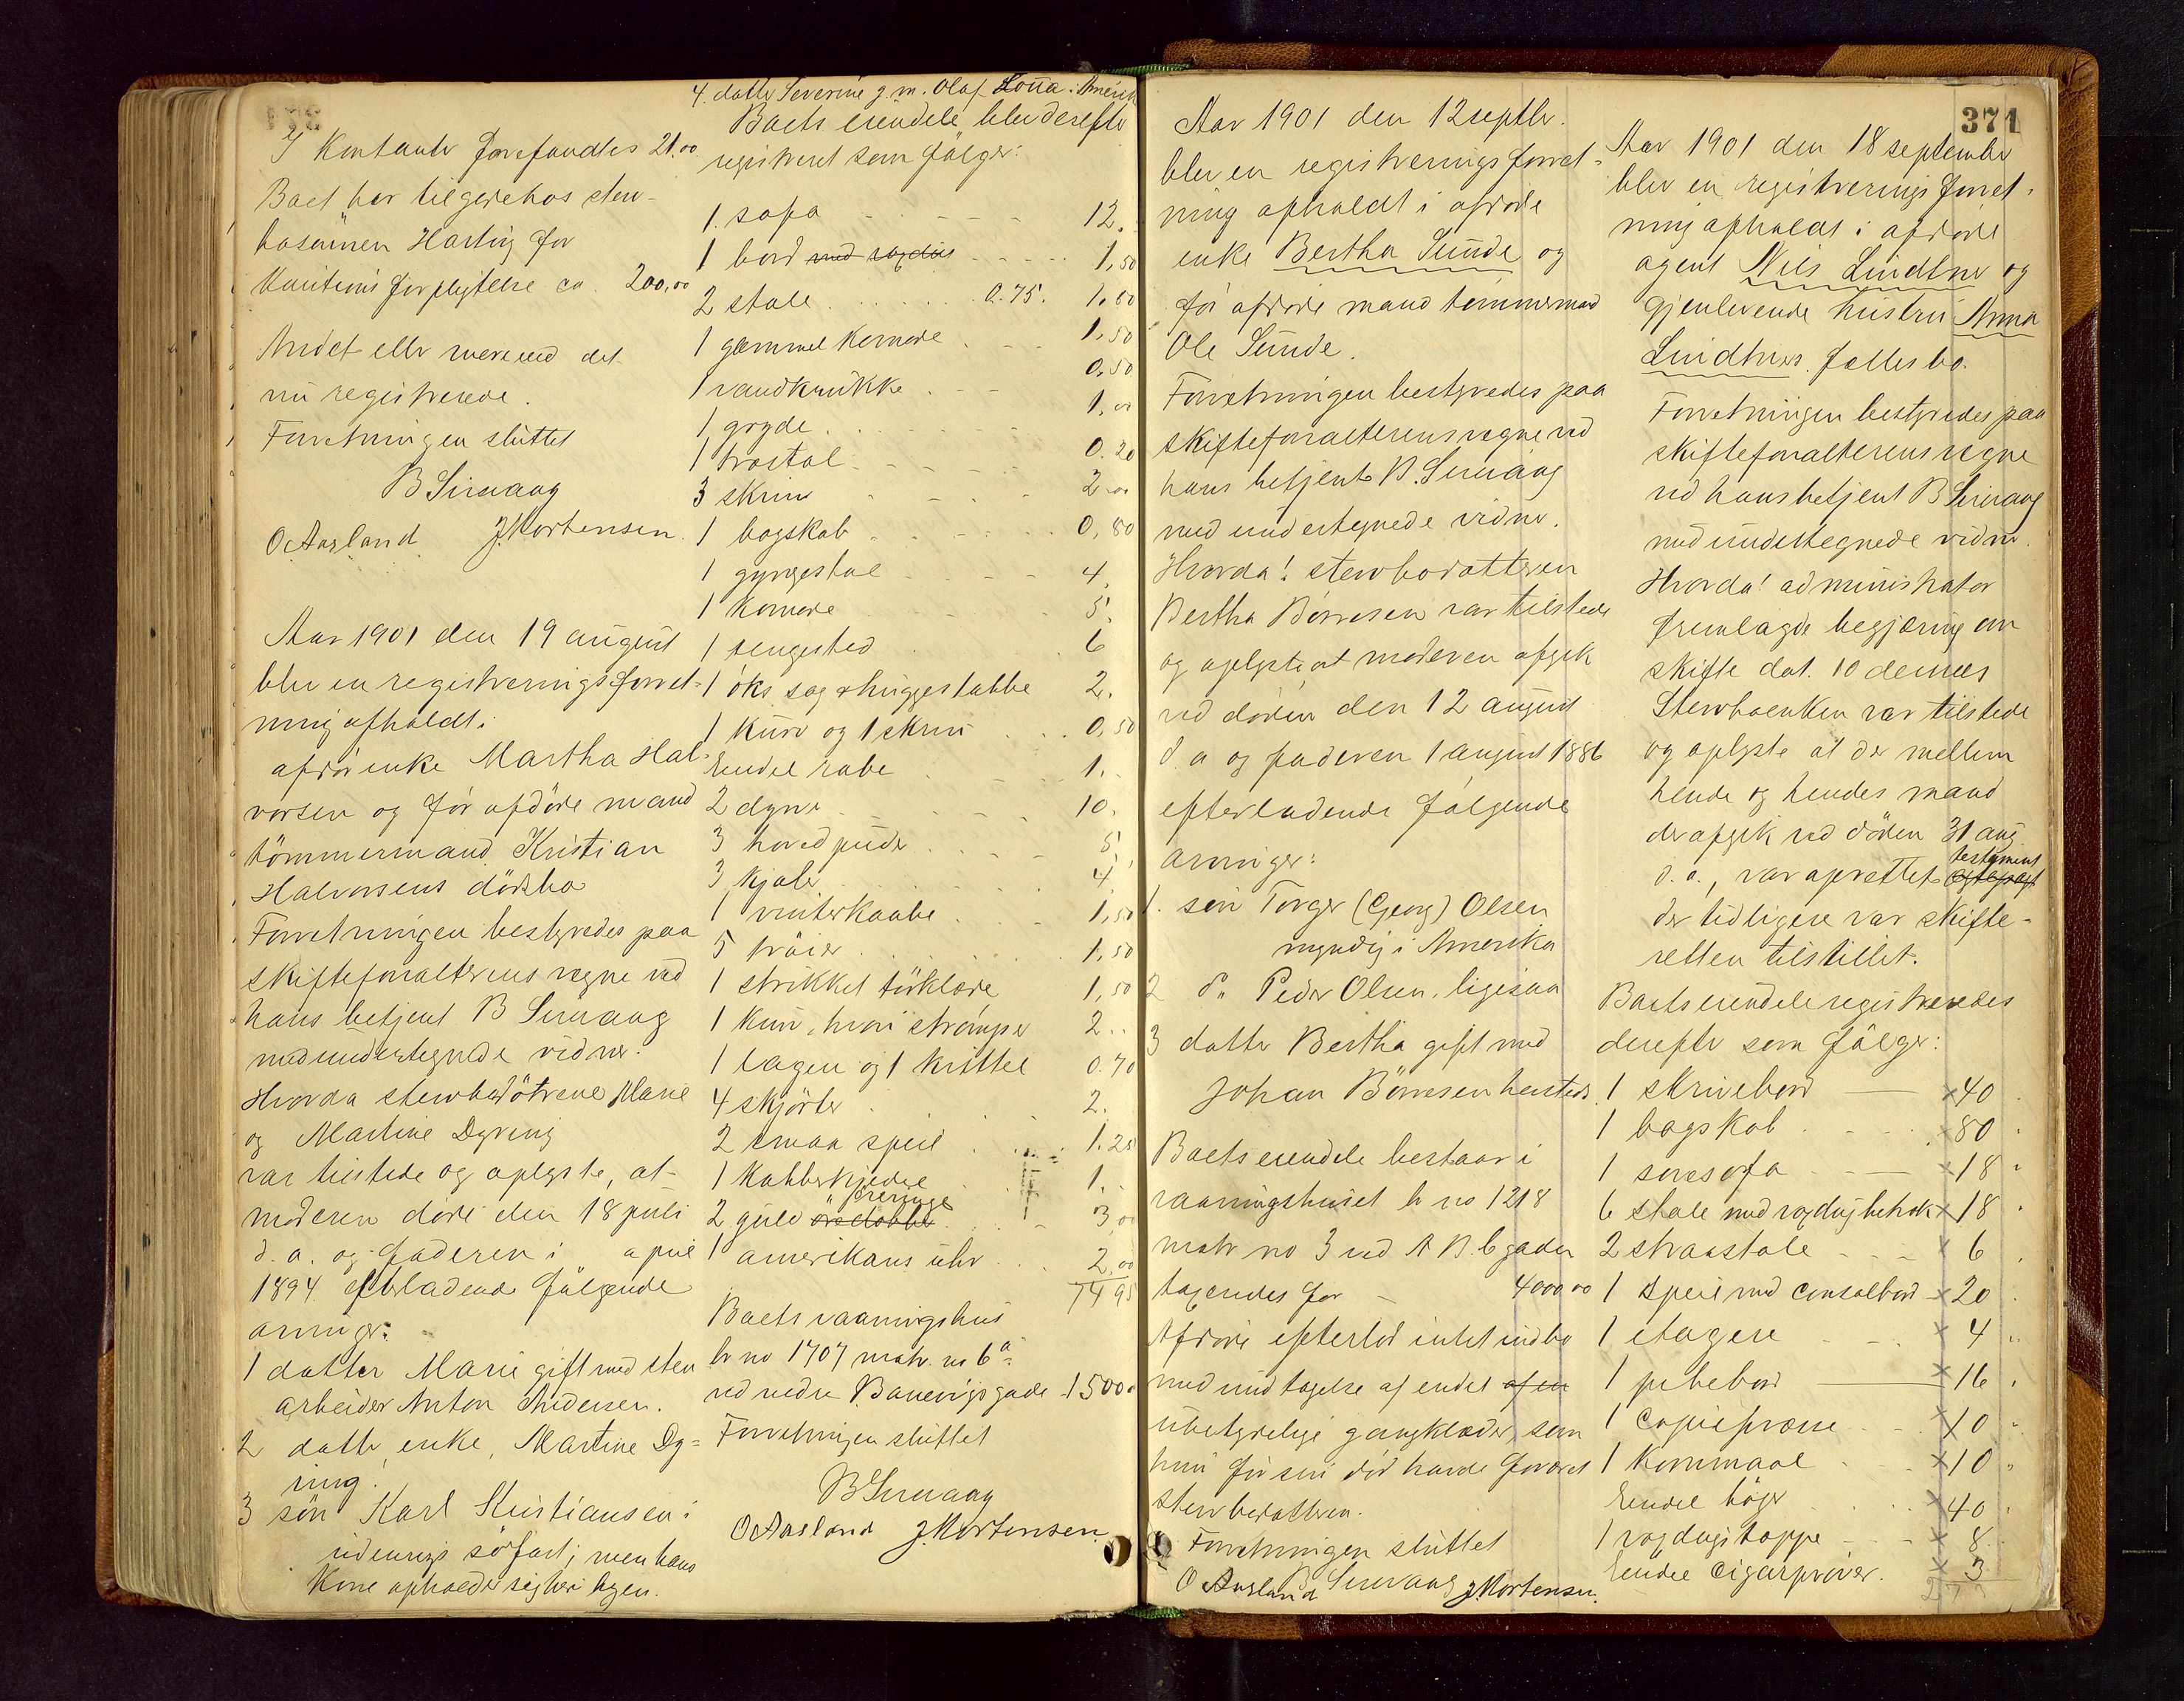 I Kontanter forefandtes 21,00
Boet har tilgode hos sterv-
bosönnen Hartvig for
Kautionsforpligtelse ca. 200,00
Andet eller mere end det
nu registrerede.
Forretningen sluttet
B Sirevaag
O Aasland J. Mortensen.
Aar 1901 den 19 august
blev en registreringsforret-
ning afholdt i
afdøde enke Martha Hal-
vorsen og før afdöde mand
tömmermand Kristian
Halvorsens dödsbo
Forretningen bestyredes paa
skifteforvalterens vegne ved
hans betjent B Sirevaag
med undertegnede vidner.
Hvorda stervbodötrene Marie
og Martine Dyring
var tilstede og oplyste, at
moderen døde den 18 juli
d. a. og faderen i april
1894 efterladende følgende
arvinger:
1 datter Marie gift med sten
arbeider Anton Andersen.
2 datter, enke, Martine Dy=
ring.
3 sön Karl Kristiansen i
udenrigs söfart, men hans
Kone opholder sig her i byen.
4. datter Severine g. m. Olaf Lonna i Amerik
Boets eiendele blev derefter
registreret som følger:
1 sofa 12.
1 bord med voxdug 1,50
2 stole 0.75. 1.50
1 gammel Komode 1,50
1 vandkrukke 0,50
1 gryde 1,00
1 træstol 0.20
3 skrin 2,00
1 bogskab 0,80
1 gyngestol 4.
1 Komode 5.
1 sengested 6
1 öks sag & huggestabbe 2.
1 kurv og 1 skrin 0,50
Endel sabe 1.
2 dyner 10.
3 hovedpuder 5.
3 kjoler 4.
1 vinterkaabe 1,50
5 tröier 1,50
1 strikket törklæde 1,50
1 kurv, hvori strømper 2..
1 lagen og 1 kittel 0.70
4 skjörter 2.
2 smaa speil 1.25
1 Kobberkjedel 1.
2 guld öredobbe öreringe 3,00
1 amerikans uhr 2,00
74 95
Boets vaaningshus
br no 1707 matr. no 6a
ved nedre Banevigsgade 1500.
Forretningen sluttet
B Sirevaag
O Aasland J. Mortensen.
371
Aar 1901 den 12 septbr.
blev en registreringsforret-
ning afholdt i afdøde
enke Bertha Sunde og
før afdøde mand tømmermand
Ole Sunde.
Forretningen bestyredes paa
skifteforvalterens vegne ved
hans betjent B. Sirevaag
med undertegnede vidner.
Hvorda! stervbodatteren
Bertha Börresen var tilstede
og oplyste at moderen afgik
ved döden den 12 august
d. a og faderen 1 august 1886
efterladende følgende
arvinger:
1. søn Torger (Georg) Olsen
myndig i Amerika
2 do Peder Olsen, ligesaa
3 datter Bertha gift med
Johan Börresen hersteds.
Boets eiendele bestaar i
vaaningshuset br no 1218
matr no 3 ved A B. C gaden
taxeredes for 4000 00
Afdøde efterlod intet indbo
med undtagelse af endel af en
ubetydelige gangklæder, som
hun før sin død havde foræret
stervbodatteren.
Forretningen sluttet
B Sirevaag
O Aasland J. Mortensen.
Aar 1901 den 18 september
blev en registreringsforret-
ning afholdt i afdøde
agent Nils Lindtner og
gjenlevende hustru Anna
Lindtners fællesbo.
Forretningen bestyredes paa
skifteforvalterens vegne
ved hans betjent B Sirevaag
med undertegnede vidner.
Hvorda! administrator
fremlagde begjæring om
skifte dat. 10 dennes
Stervboenken var tilstede
og oplyste at der mellem
hende og hendes mand
der afgik ved døden 31 aug
d. a., var oprettet testament
der tidligere var skifte-
retten tilstillet.
Boets eiendele registreredes
derefter som følger:
1 skrivebord × 40
1 bogskab × 80
1 sovesofa × 18
6 stole med voxdugbetræk × 18
2 straastole × 6
1 speil med consolbord × 20
1 etagere × 4
1 pibebord × 16
1 copiepresse × 10
1 kornmaal × 10
Endel bøger × 40
1 voxdugstoppe × 8
Endel cigarprøver. × 3